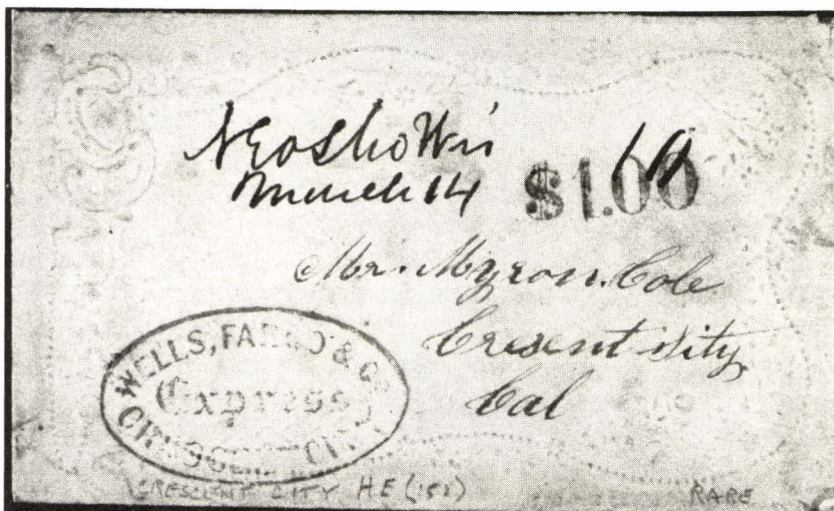 Neosho Wis
March 14
10
$1.00
Mr. Myron Cole
Cresent City
Cal
WELLS, FARGO & CO
Express
CRESCENT CITY
CRESCENT CITY HE (151) RARE